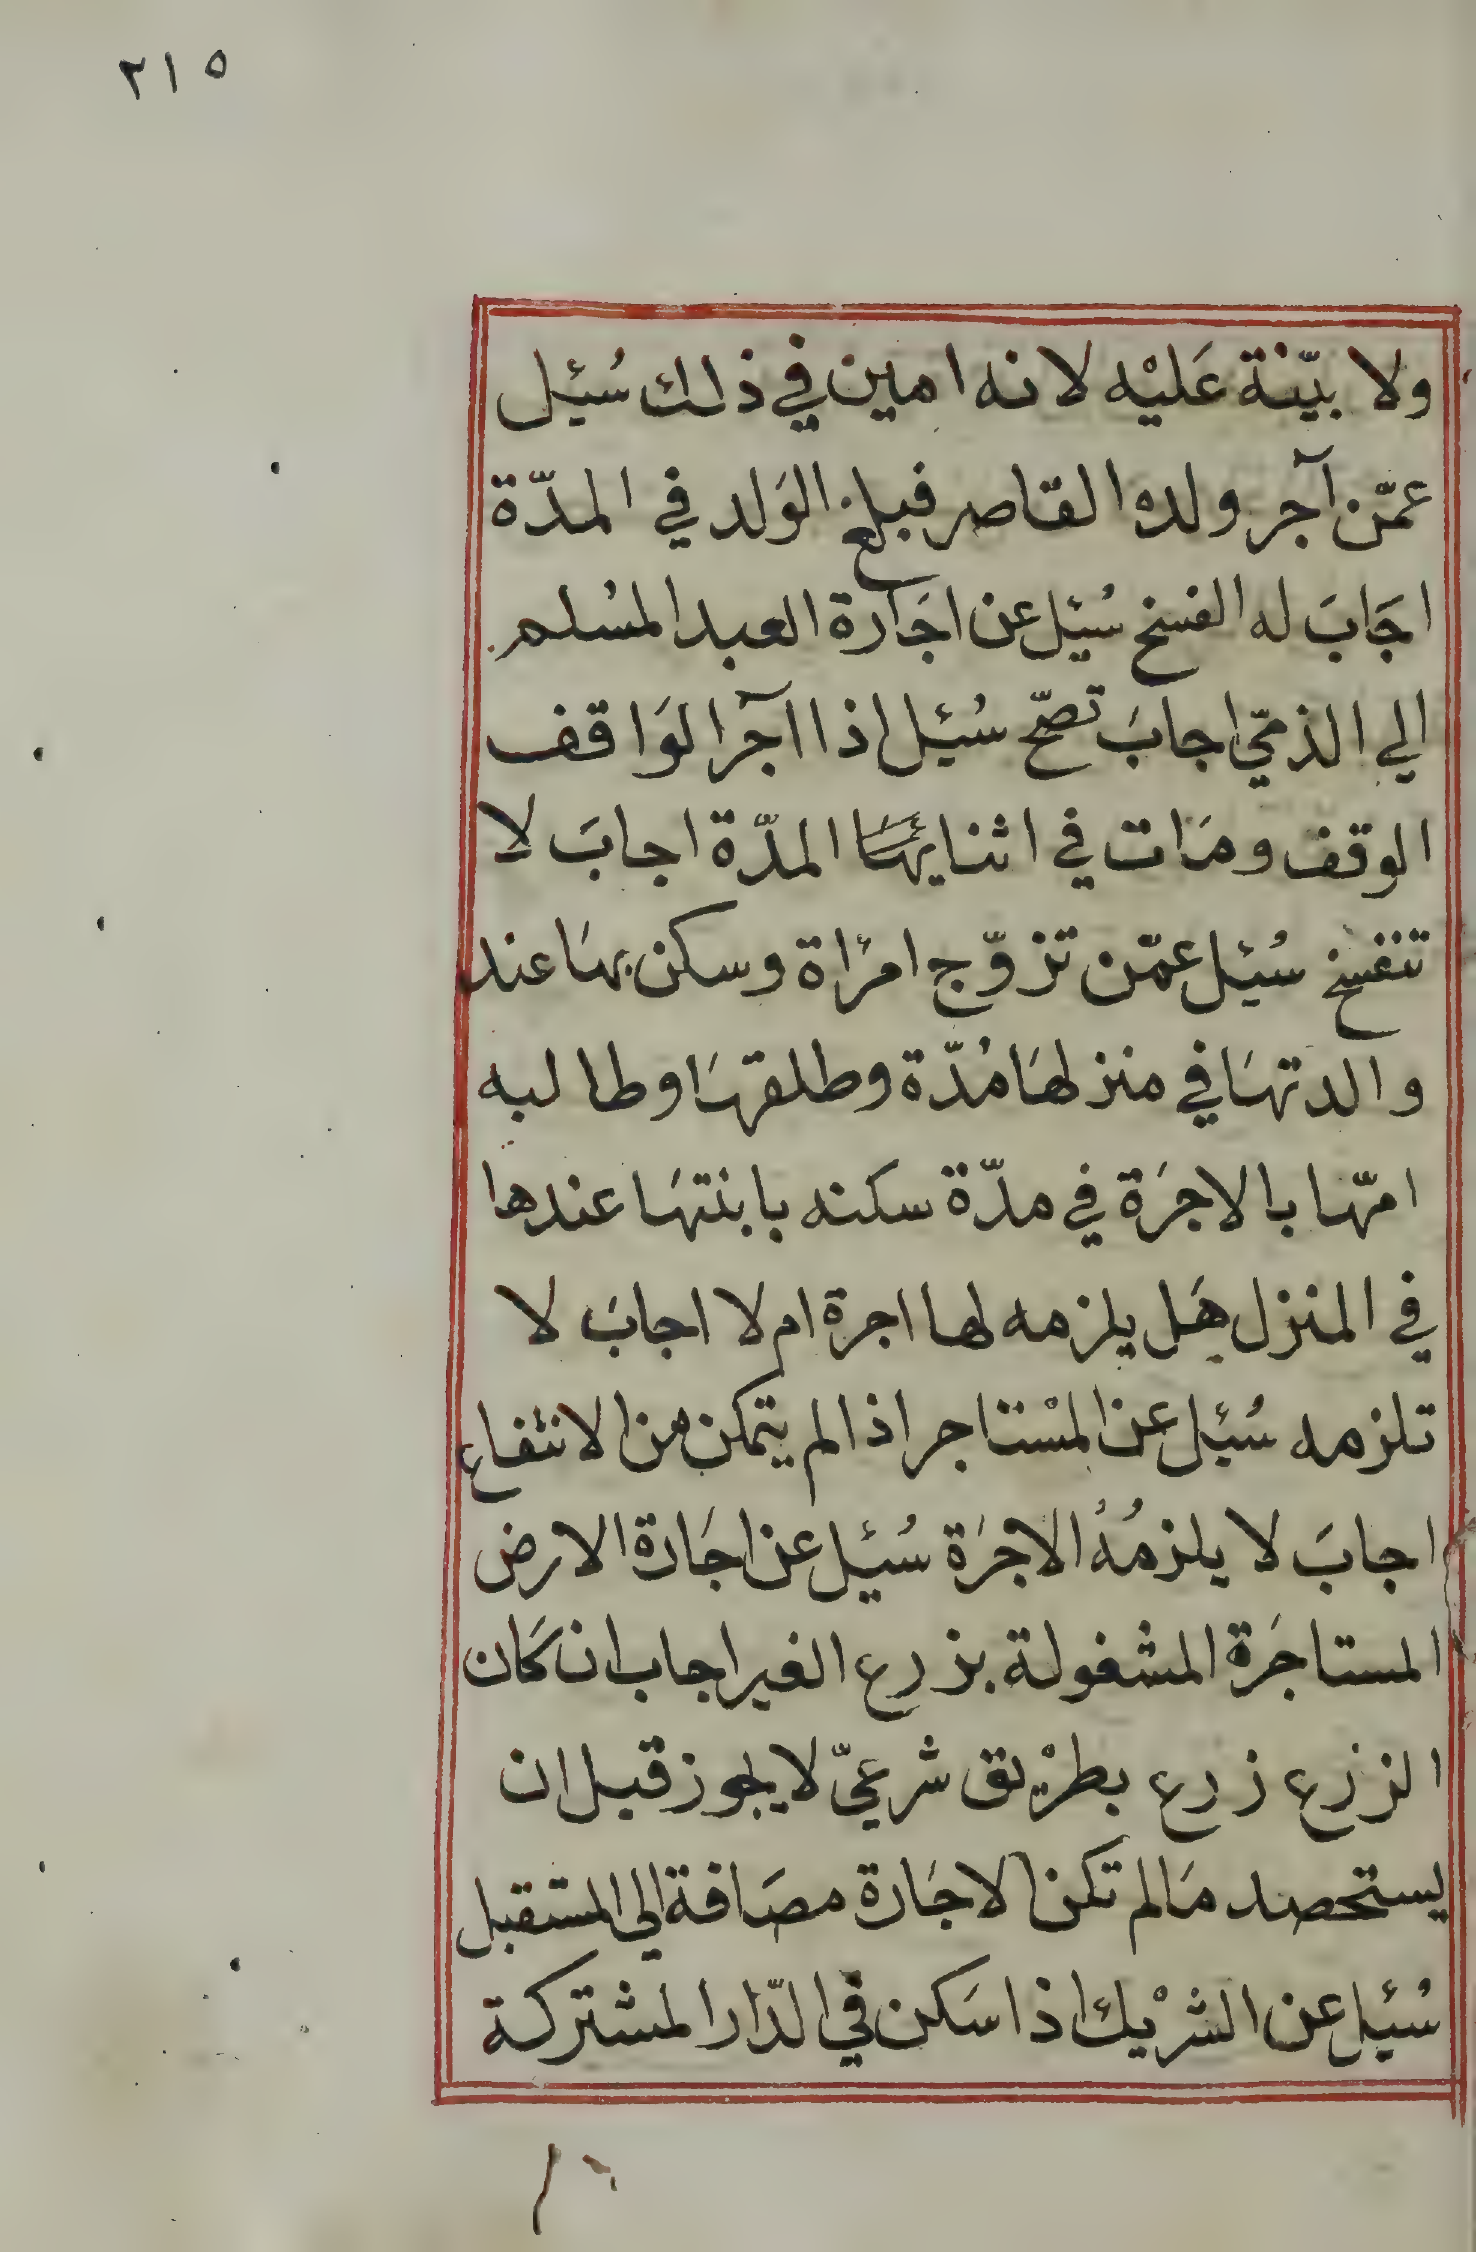 ٢١٥
ولا بيّنة عَليْه لانه امين في ذلك سُئِل
عمّن آجر ولده القاصر فبلغ الوَلد في المدّة
اجَابَ له الفسخ سُئِل عن اجَارة العبد المسُلم
الي الذميّ اجابَ تصحّ سُئِل اذا اآجر الوَاقف
الوقف ومَات في اثنايهَا المدّة اجابَ لا
تنفسخ سُئِل عمّن تزوّج امرٔاة وسكن بهَا عند
والدتهَا في منزلهَا مُدّة وطلقهَا وطالبه
امّها بالاجرَة في مدّة سكنه بابنتهَا عندها
في المنزل هَل يلزمه لها اجرة ام لا اجابَ لا
تلزمه سُئِل عن المسْتاجر اذا لم يتمكن من الانتفاع
اجابَ لا يلزمُهُ الاجرَة سُئِل عن اجَارة الارض
المستاجَرة المشغولة بزرع الغير اجاب ان كَان
الزرع زرع بطرْيق شرعيّ لا يجوز قبل ان
يستحصد مَا لم تكن الاجَارة مضَافة الي المستقبل
سُئِل عن الشرْيك اذا سَكن في الدّار المشتركة